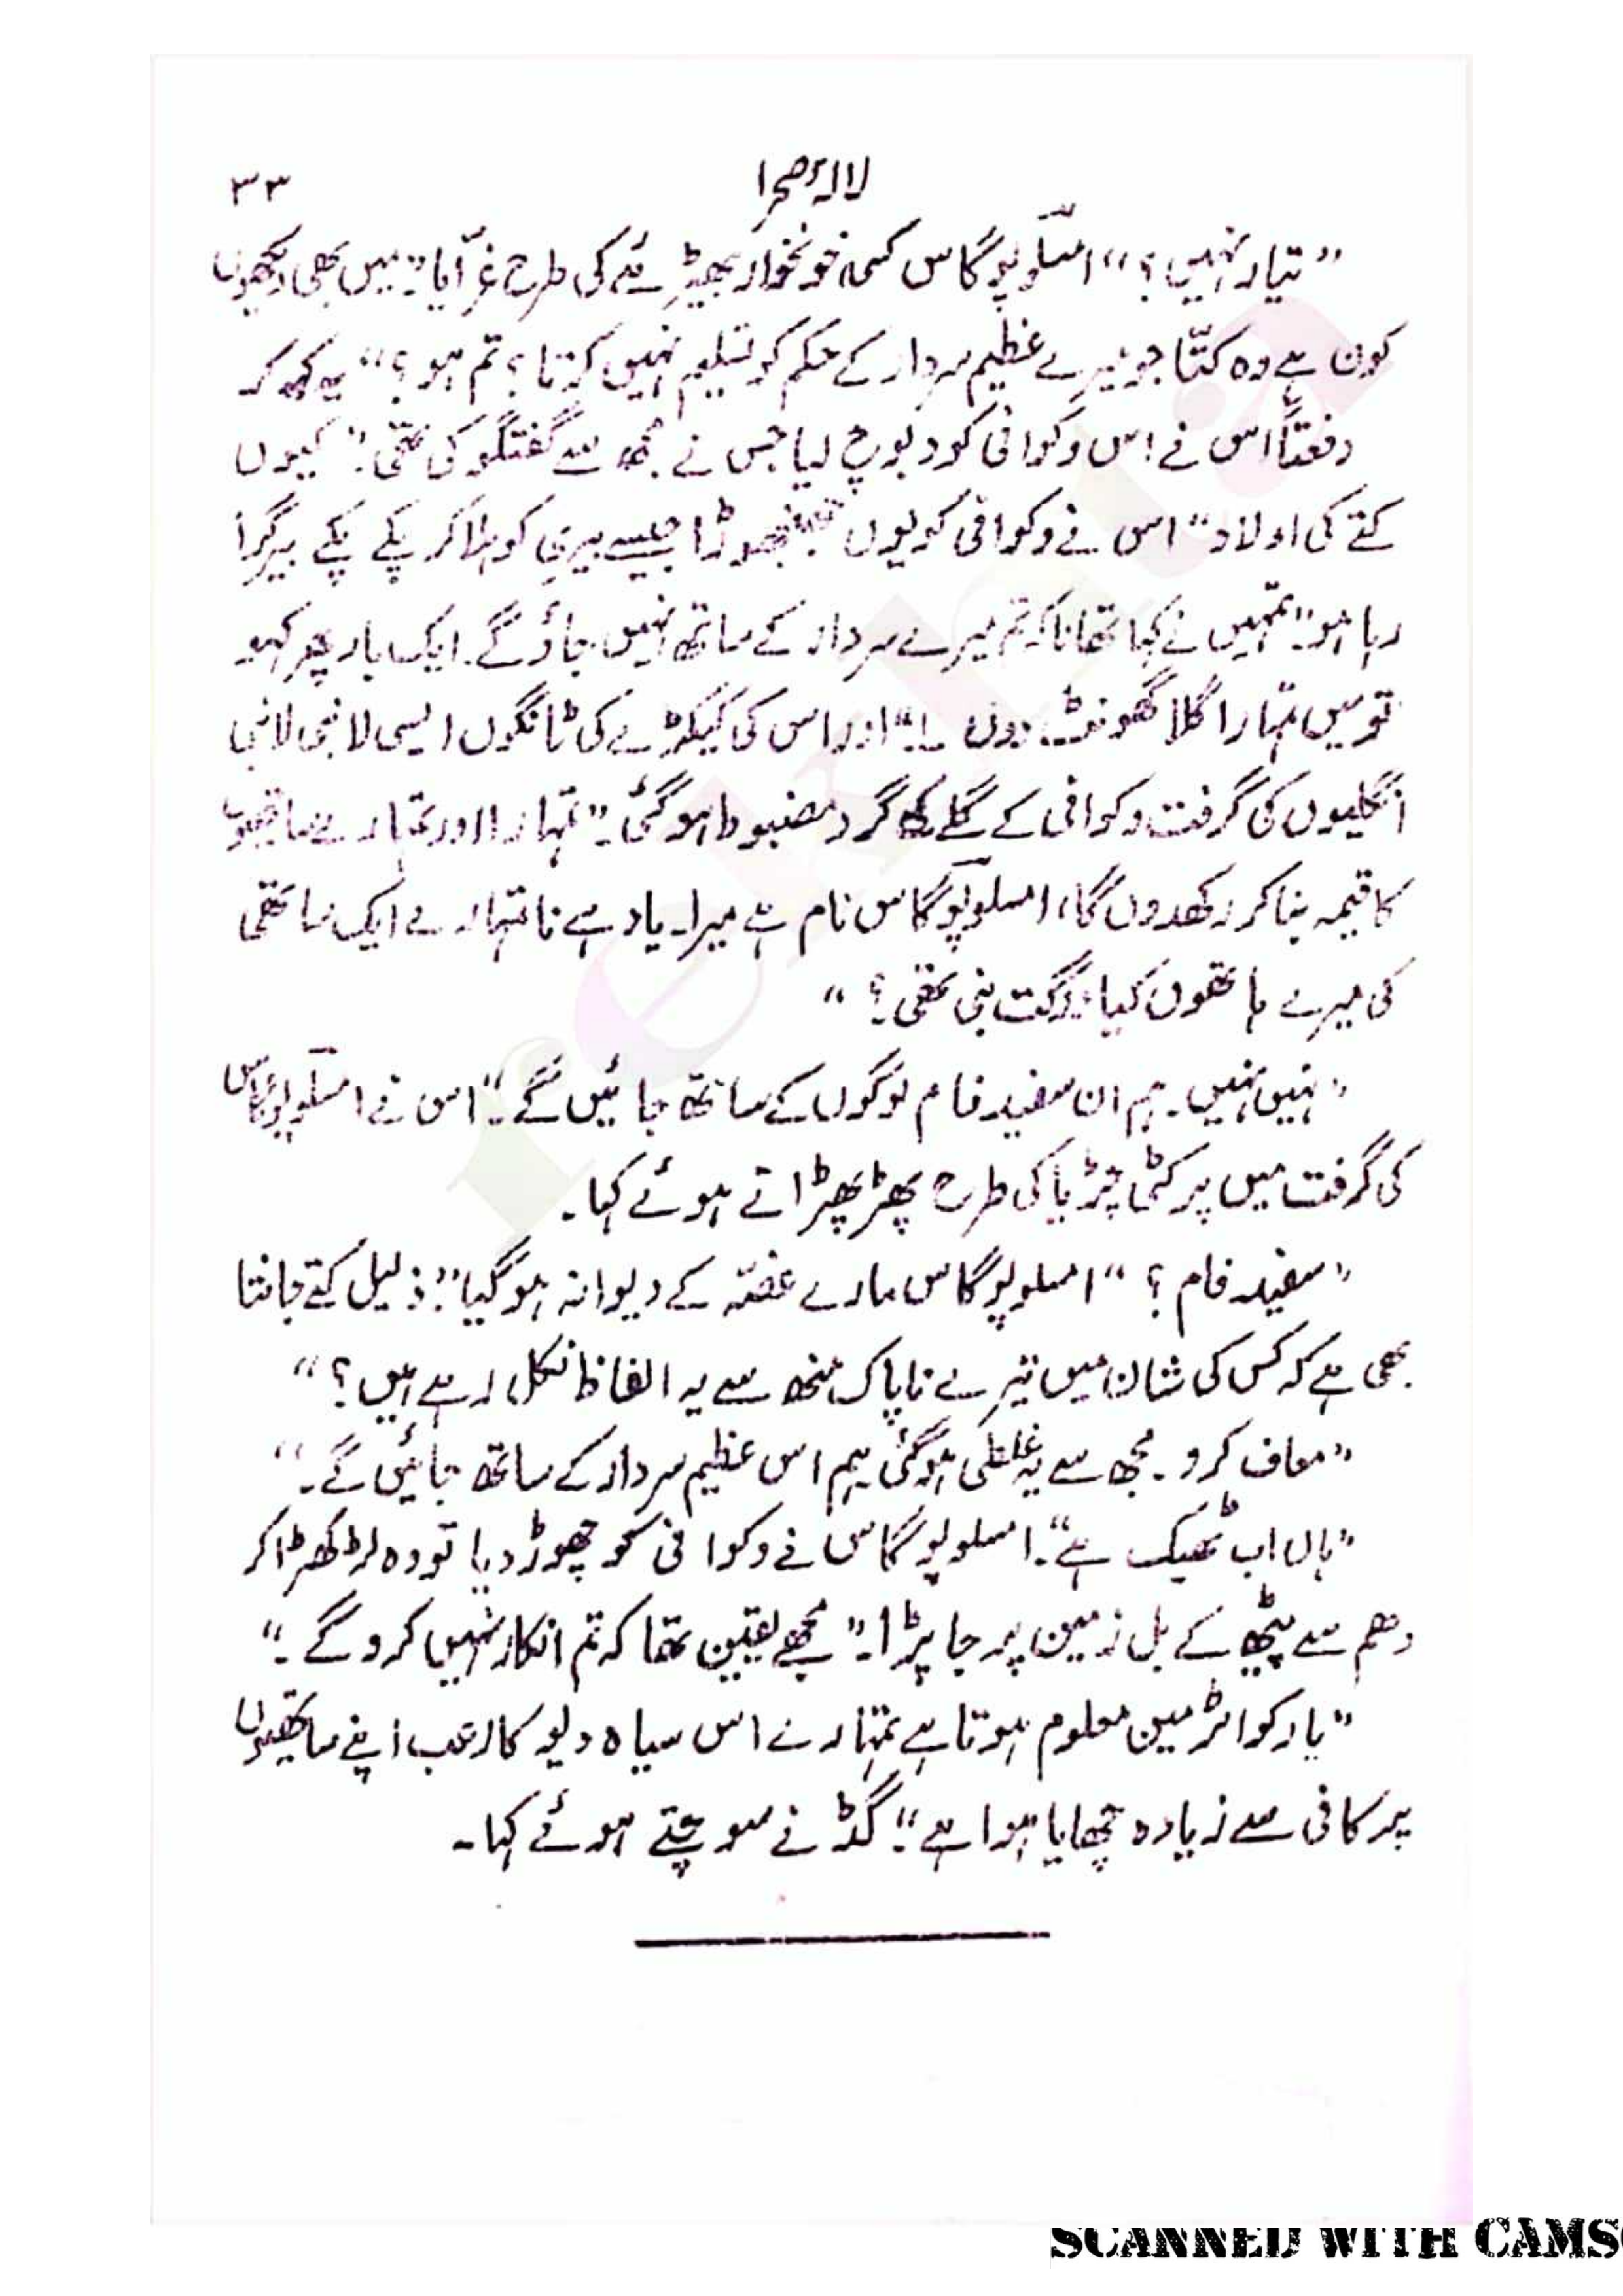 لالہ صحرا
۳۳
”تیار نہیں؟“ امسلوپوگاس کسی خونخوار بھیڑیئے کی طرح غرّایا: ”میں بھی دیکھوں
کون ہے وہ کتّا جو میرے عظیم سردار کے حکم کو تسلیم نہیں کرتا؟ تم ہو؟“ یہ کہہ کر
دفعتاً اس نے اس وکوافی کو دبوچ لیا جس نے مجھ سے گفتگو کی تھی: ”کیوں
کتے کی اولاد“ اس نے وکوافی کو یوں جھنجھوڑا جیسے بیری کو ہلا کر پکے پکے بیر گرا
رہا ہو: ”تمہیں نے کہا تھا نا کہ تم میرے سردار کے ساتھ نہیں جاؤ گے۔ ایک بار پھر کہو
تو میں تمہارا گلا گھونٹ دوں۔!“ اور اس کی کیکڑے کی ٹانگوں ایسی لانبی لانبی
انگلیوں کی گرفت وکوافی کے گلے کے گرد مضبوط ہو گئی۔ ”تمہارا اور تمہارے ساتھیوں
کا قیمہ بنا کر رکھدوں گا، امسلوپوگاس نام ہے میرا۔ یاد ہے نا تمہارے ایک ساتھی
کی میرے ہاتھوں کیا درگت بنی تھی؟“
”نہیں نہیں۔ ہم ان سفید فام لوگوں کے ساتھ جائیں گے۔“ اس نے امسلوپوگاس
کی گرفت میں پر کٹی چڑیا کی طرح پھڑپھڑاتے ہوئے کہا۔
”سفید فام؟“ امسلوپوگاس مارے غصّہ کے دیوانہ ہو گیا: ”ذلیل کتے جانتا
بھی ہے کہ کس کی شان میں تیرے ناپاک منھ سے یہ الفاظ نکل رہے ہیں؟“
”معاف کرو۔ مجھ سے یہ غلطی ہو گئی ہم اس عظیم سردار کے ساتھ جائیں گے۔“
”ہاں اب ٹھیک ہے“۔ امسلوپوگاس نے وکوافی کو چھوڑ دیا تو وہ لڑکھڑا کر
دھم سے پیٹھ کے بل زمین پر جا پڑا۔ ”مجھے یقین تھا کہ تم انکار نہیں کرو گے۔“
”یار کواٹرمین معلوم ہوتا ہے تمہارے اس سیاہ دیو کا رعب اپنے ساتھیوں
پر کافی سے زیادہ چھایا ہوا ہے“: گڈ نے سوچتے ہوئے کہا۔
rekhta
SCANNED WITH CAMS